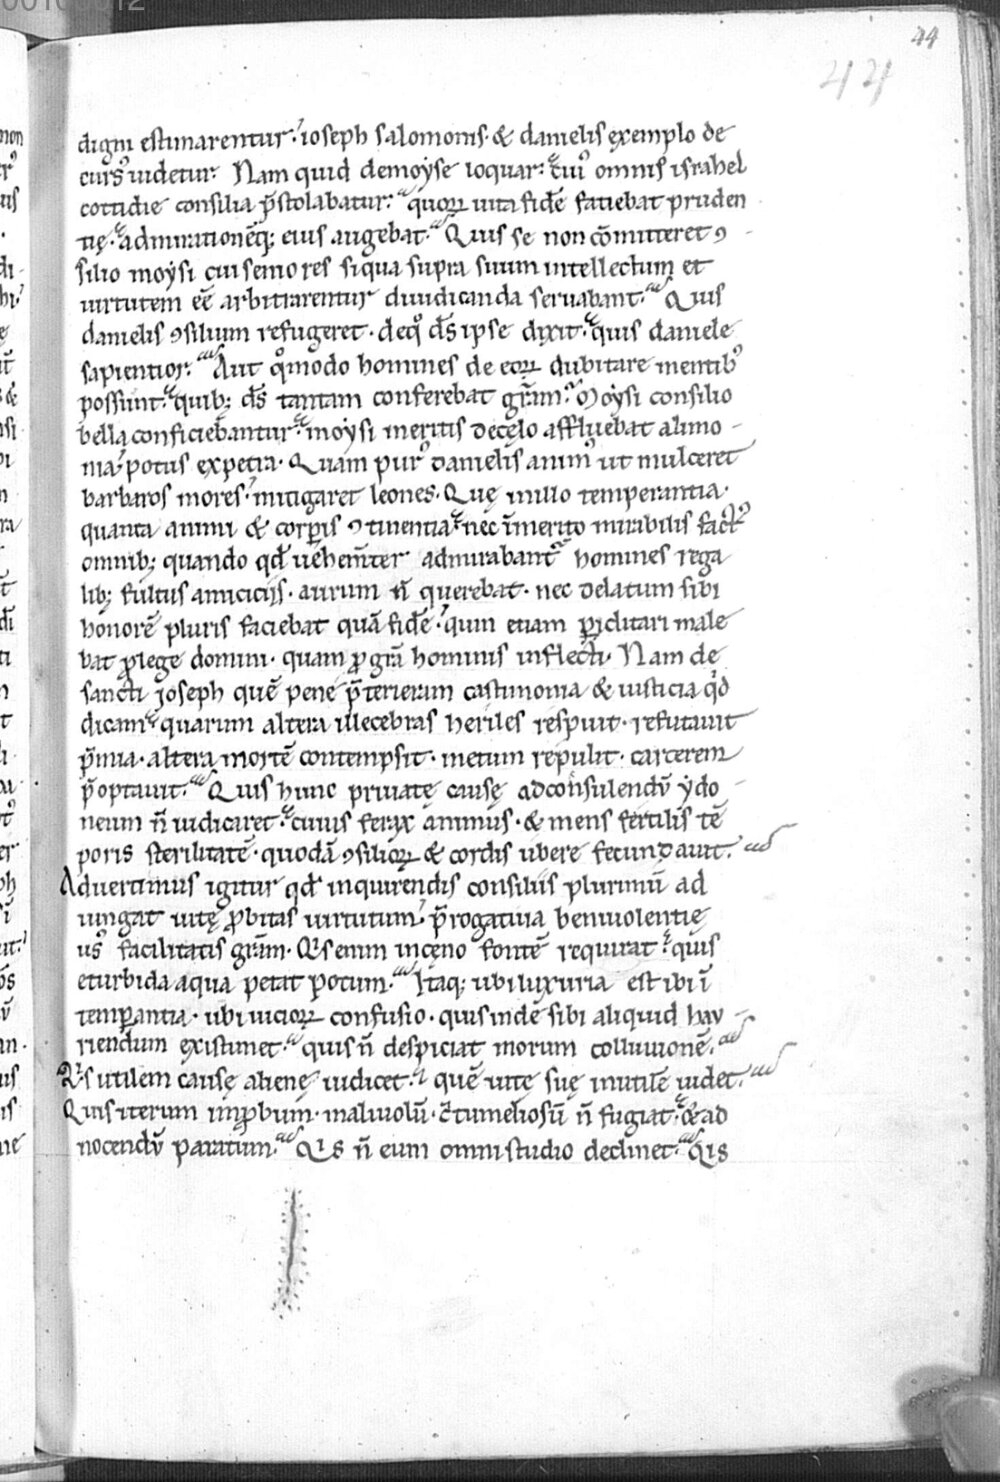 00100012
44
44
digni estimarentur. ioseph salomonis. & danielis exemplo de
curs᷒ uidetur. Nam quid demoẏse loquar. cui᷒ omnis israhel
cottidie consilia p̄stolabatur. quoꝝ uita fidē fatiebat pruden
tię. admirationēq; eius augebat. Quis se non cōmitteret ꝯ-
silio moẏsi cui seniores siqua supra suum intellectum et
uirtutem eē arbitrarentur diiudicanda seruabant. Quis
danielis ꝯsilium refugeret. deq̊ d̄s ipse dixit. quis daniele
sapientior. Aut q̊modo homines de eoꝝ dubitare mentib᷒
possunt. quib; d̄s tantam conferebat grām. Moẏsi consilio
bella conficiebantur. moẏsi meritis decęlo affluebat alimo-
nia. potus expetra. Quam pur᷒ danielis anim᷒ ut mulceret
barbaros mores. mitigaret leones. Quę in illo temperantia.
quanta animi & corꝑis ꝯtinentia. nec īmerito mirabilis fact᷒
omnib; quando qd̄ uehem̄ter admirabant᷑ homines rega
lib; fultus amiciciis. aurum n̄ querebat. nec delatum sibi
honorē pluris faciebat quā fidē. quin etiam ꝑiclitari male
bat ꝓlege domini. quam ꝓ grā hominis inflecti. Nam de
sancti joseph quē pene p̄terieram castimonia & iusticia qd̄
dicam. quarum altera illecebras heriles respuit. refutauit
p̄mia. altera mortē contempsit. metum repulit. carcerem
p̄optauit. Quis hunc priuatę causę adconsulendū ẏdo-
neum n̄ iudicaret. cuius ferax animus. & mens fertilis tē
poris sterilitatē. quodā ꝯsilioꝝ & cordis ubere fecundauit.
Aduertimus igitur qd̄ inquirendis consiliis plurimū ad
iungat uitę ꝓbitas uirtutum. p̄rogatiua beniuolentię
us᷒ facilitatis grām. Q̊s enim incęno fontē requirat. quis
eturbida aqua petat potum. Itaq; ubi luxuria est ibi ī
temꝑantia. ubi uicioꝝ confusio. quis inde sibi aliquid hau-
riendum existimet. quis n̄ despiciat morum colluuionē.
Q̊s utilem causę alienę iudicet. quē uitę suę inutilē uidet.
Quis iterum imꝓbum. maliuolū. ꝯtumeliosū n̄ fugiat. & ad
nocendū paratum. Q̊s n̄ eum omni studio declinet. Q̊is